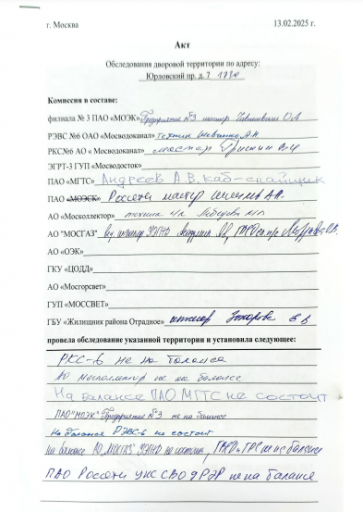 г. Москва 13.02.2025 г.
Акт
Обследования дворовой территории по адресу:
Юрловский пр. д.
Комиссия в составе:
филиала № 3 ПАО «МОЭК» Предприятие №3 инженер
РЭВС №6 ОАО «Мосводоканал» техник
РКС№6 АО « Мосводоканал» мастер
ЭГРТ-3 ГУП «Мосводосток»
ПАО «МГТС» Андреев А.В. каб-спайщик
ПАО «МОЭСК» Россети мастер
АО «Москоллектор» техник
АО "МОСГАЗ" инженер
АО «ОЭК»
ГКУ «ЦОДД»
АО «Мосгорсвет»
ГУП «МОССВЕТ»
ГБУ «Жилищник района Отрадное» инженер
провела обследование указанной территории и установила следующее:
РКС-6 не на балансе
АО Москоллектор не на балансе
На балансе ПАО МГТС не состоит
ПАО "МОЭК" Предприятие №3 не на балансе
На балансе РЭВС-6 не состоит
на балансе АО „МОСГАЗ" не состоит, не на балансе
ПАО Россети не на балансе